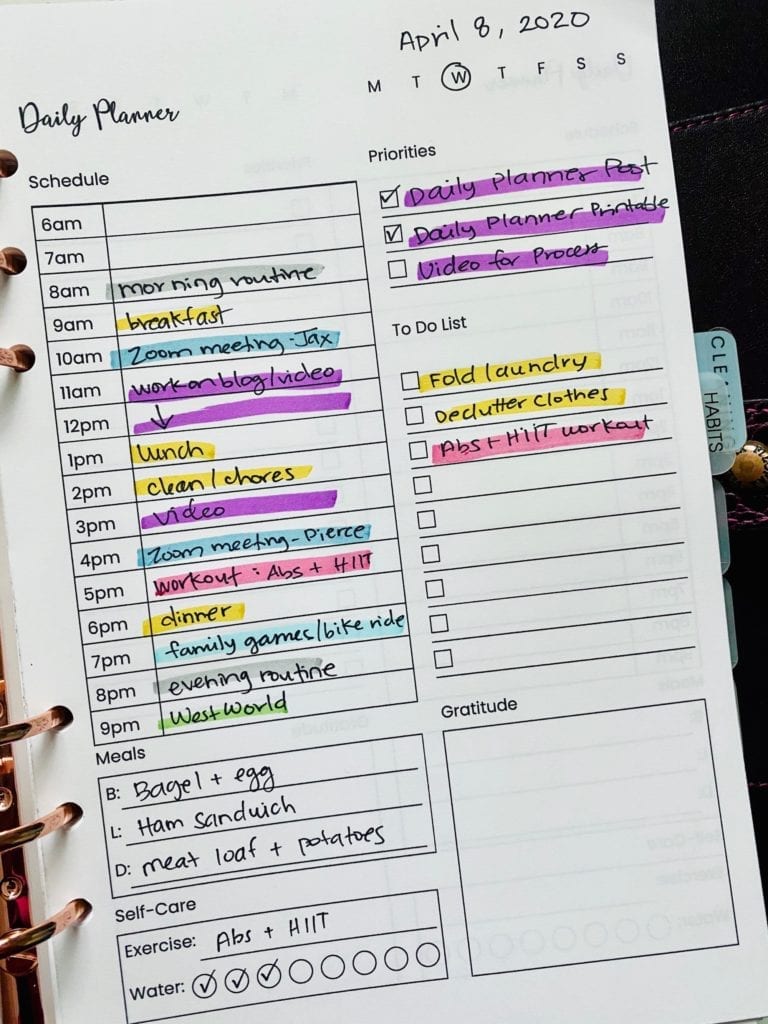 April 8, 2020
M T W T F S S
Daily Planner
Schedule
6am
7am
8am morning routine
9am breakfast
10am Zoom meeting - Jax
11am work on blog/video
12pm
1pm lunch
2pm clean/chores
3pm video
4pm Zoom meeting - Pierce
5pm workout : Abs + HIIT
6pm dinner
7pm family games/bike ride
8pm evening routine
9pm West World
Priorities
Daily Planner Post
Daily Planner Printable
Video for Process
To Do List
Fold laundry
Declutter clothes
Abs + HIIT workout
Meals
B: Bagel + egg
L: Ham Sandwich
D: meat loaf + potatoes
Self-Care
Exercise: Abs + HIIT
Water:
Gratitude
HABITS